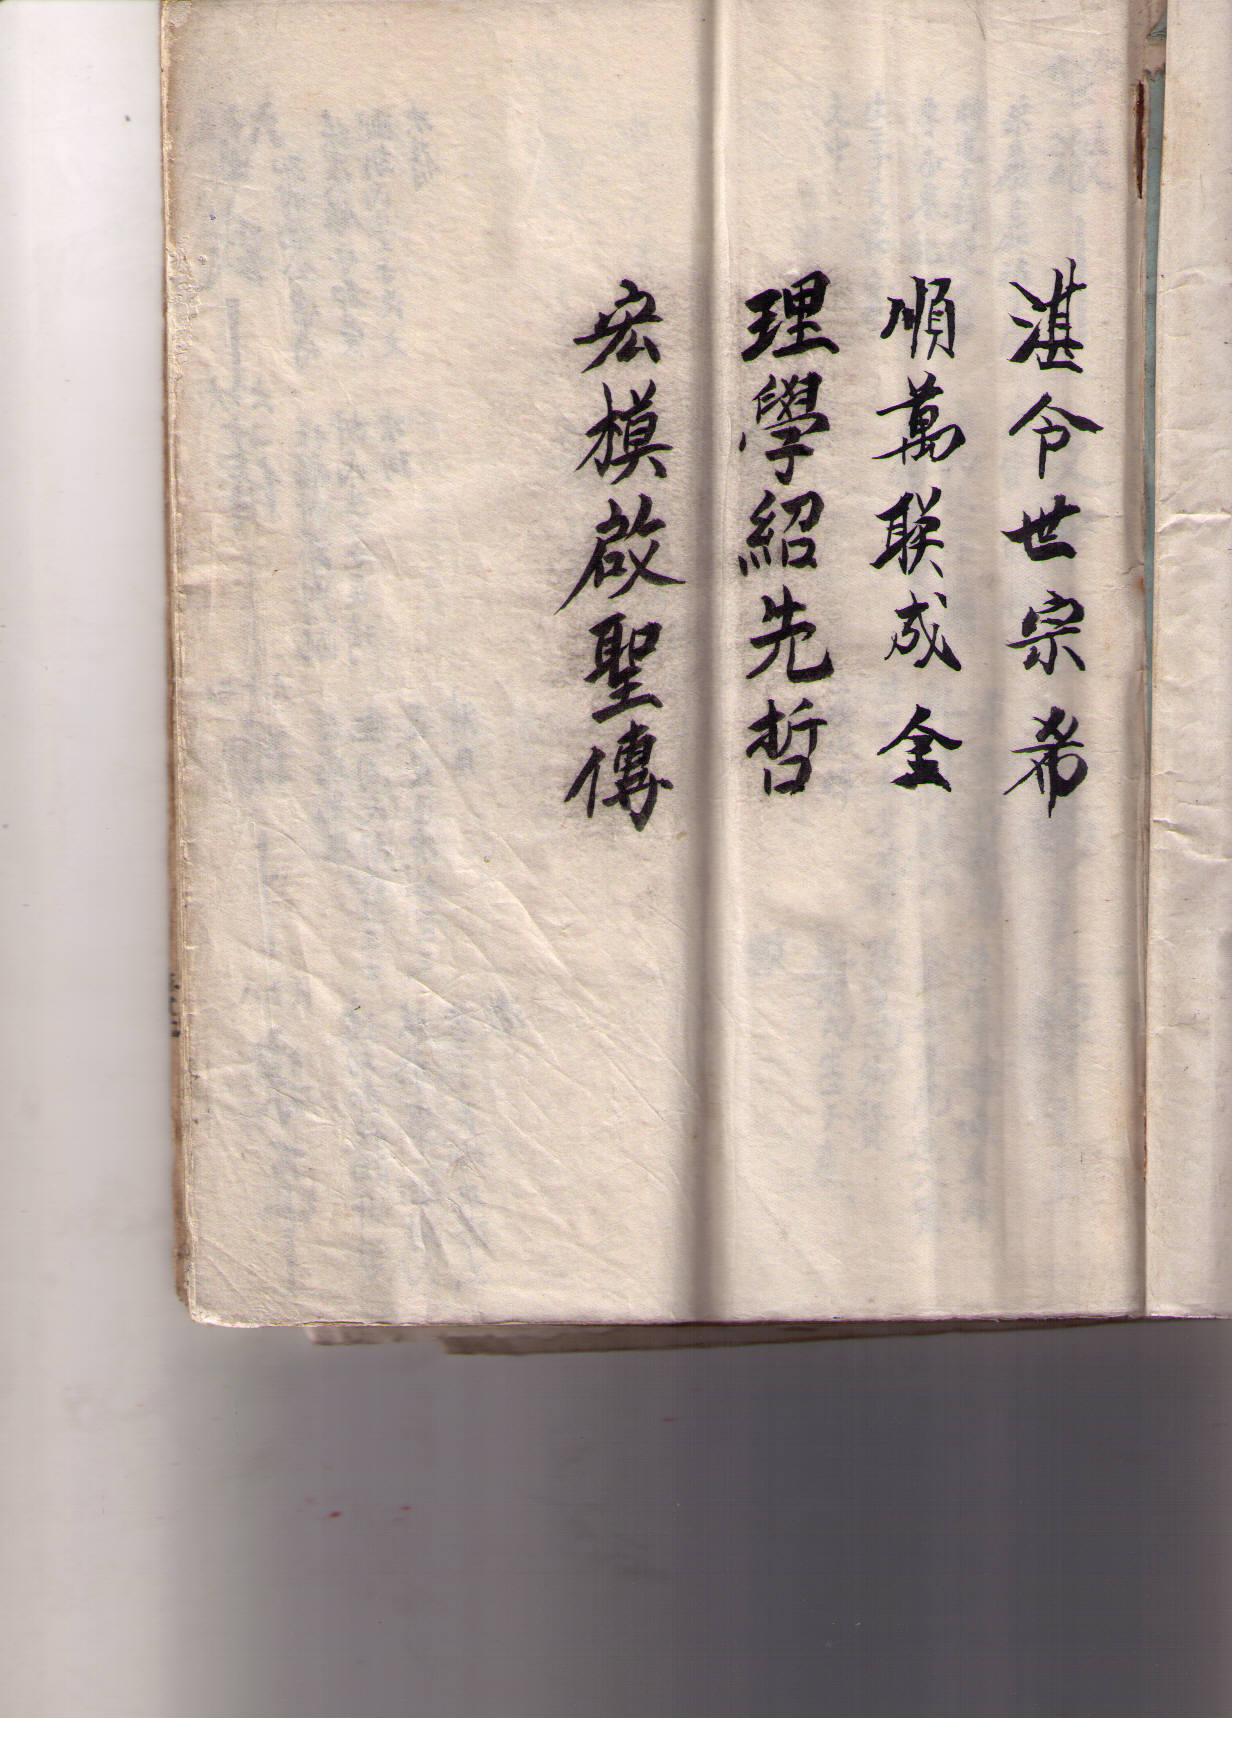 湛令世宗希
順萬聯成金
理學紹先哲
宏模啟聖傳